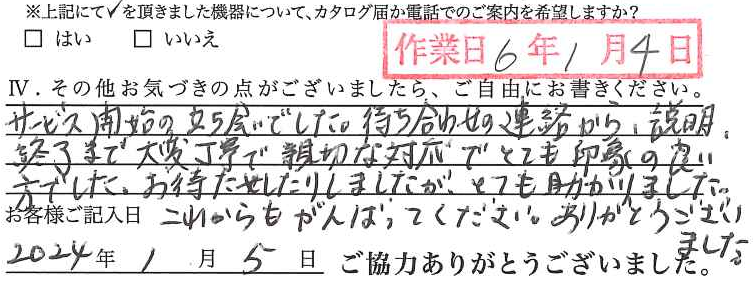 ※上記にて✓を頂きました機器について、カタログ届か電話でのご案内を希望しますか?
□ はい □ いいえ
作業日 6年1月4日
Ⅳ. その他お気づきの点がございましたら、ご自由にお書きください。
サービス開始の立ち会いでした。待ち合わせの連絡から、説明、
終了まで大変丁寧で親切な対応でとても印象の良い
方でした。お待たせしたりしましたが、とても助かりました。
お客様ご記入日 これからもがんばってください。ありがとうござい
ました。
2024年 1月 5日 ご協力ありがとうございました。